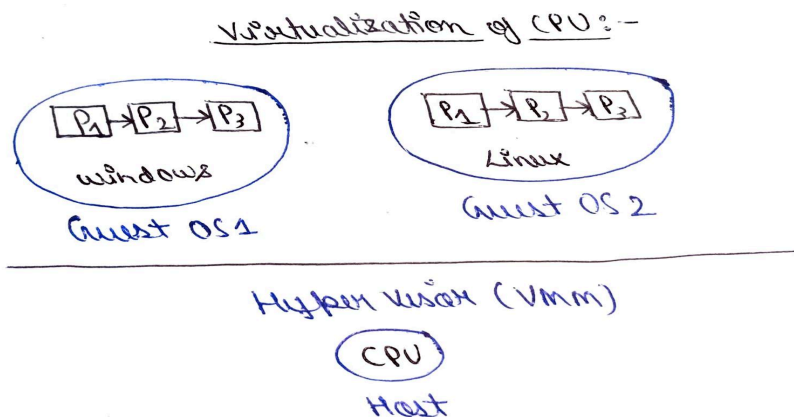 Virtualization of CPU:-
P1 → P2 → P3
Windows
Guest OS1
P1 → P2 → P3
Linux
Guest OS2
Hypervisor (VMM)
CPU
Host